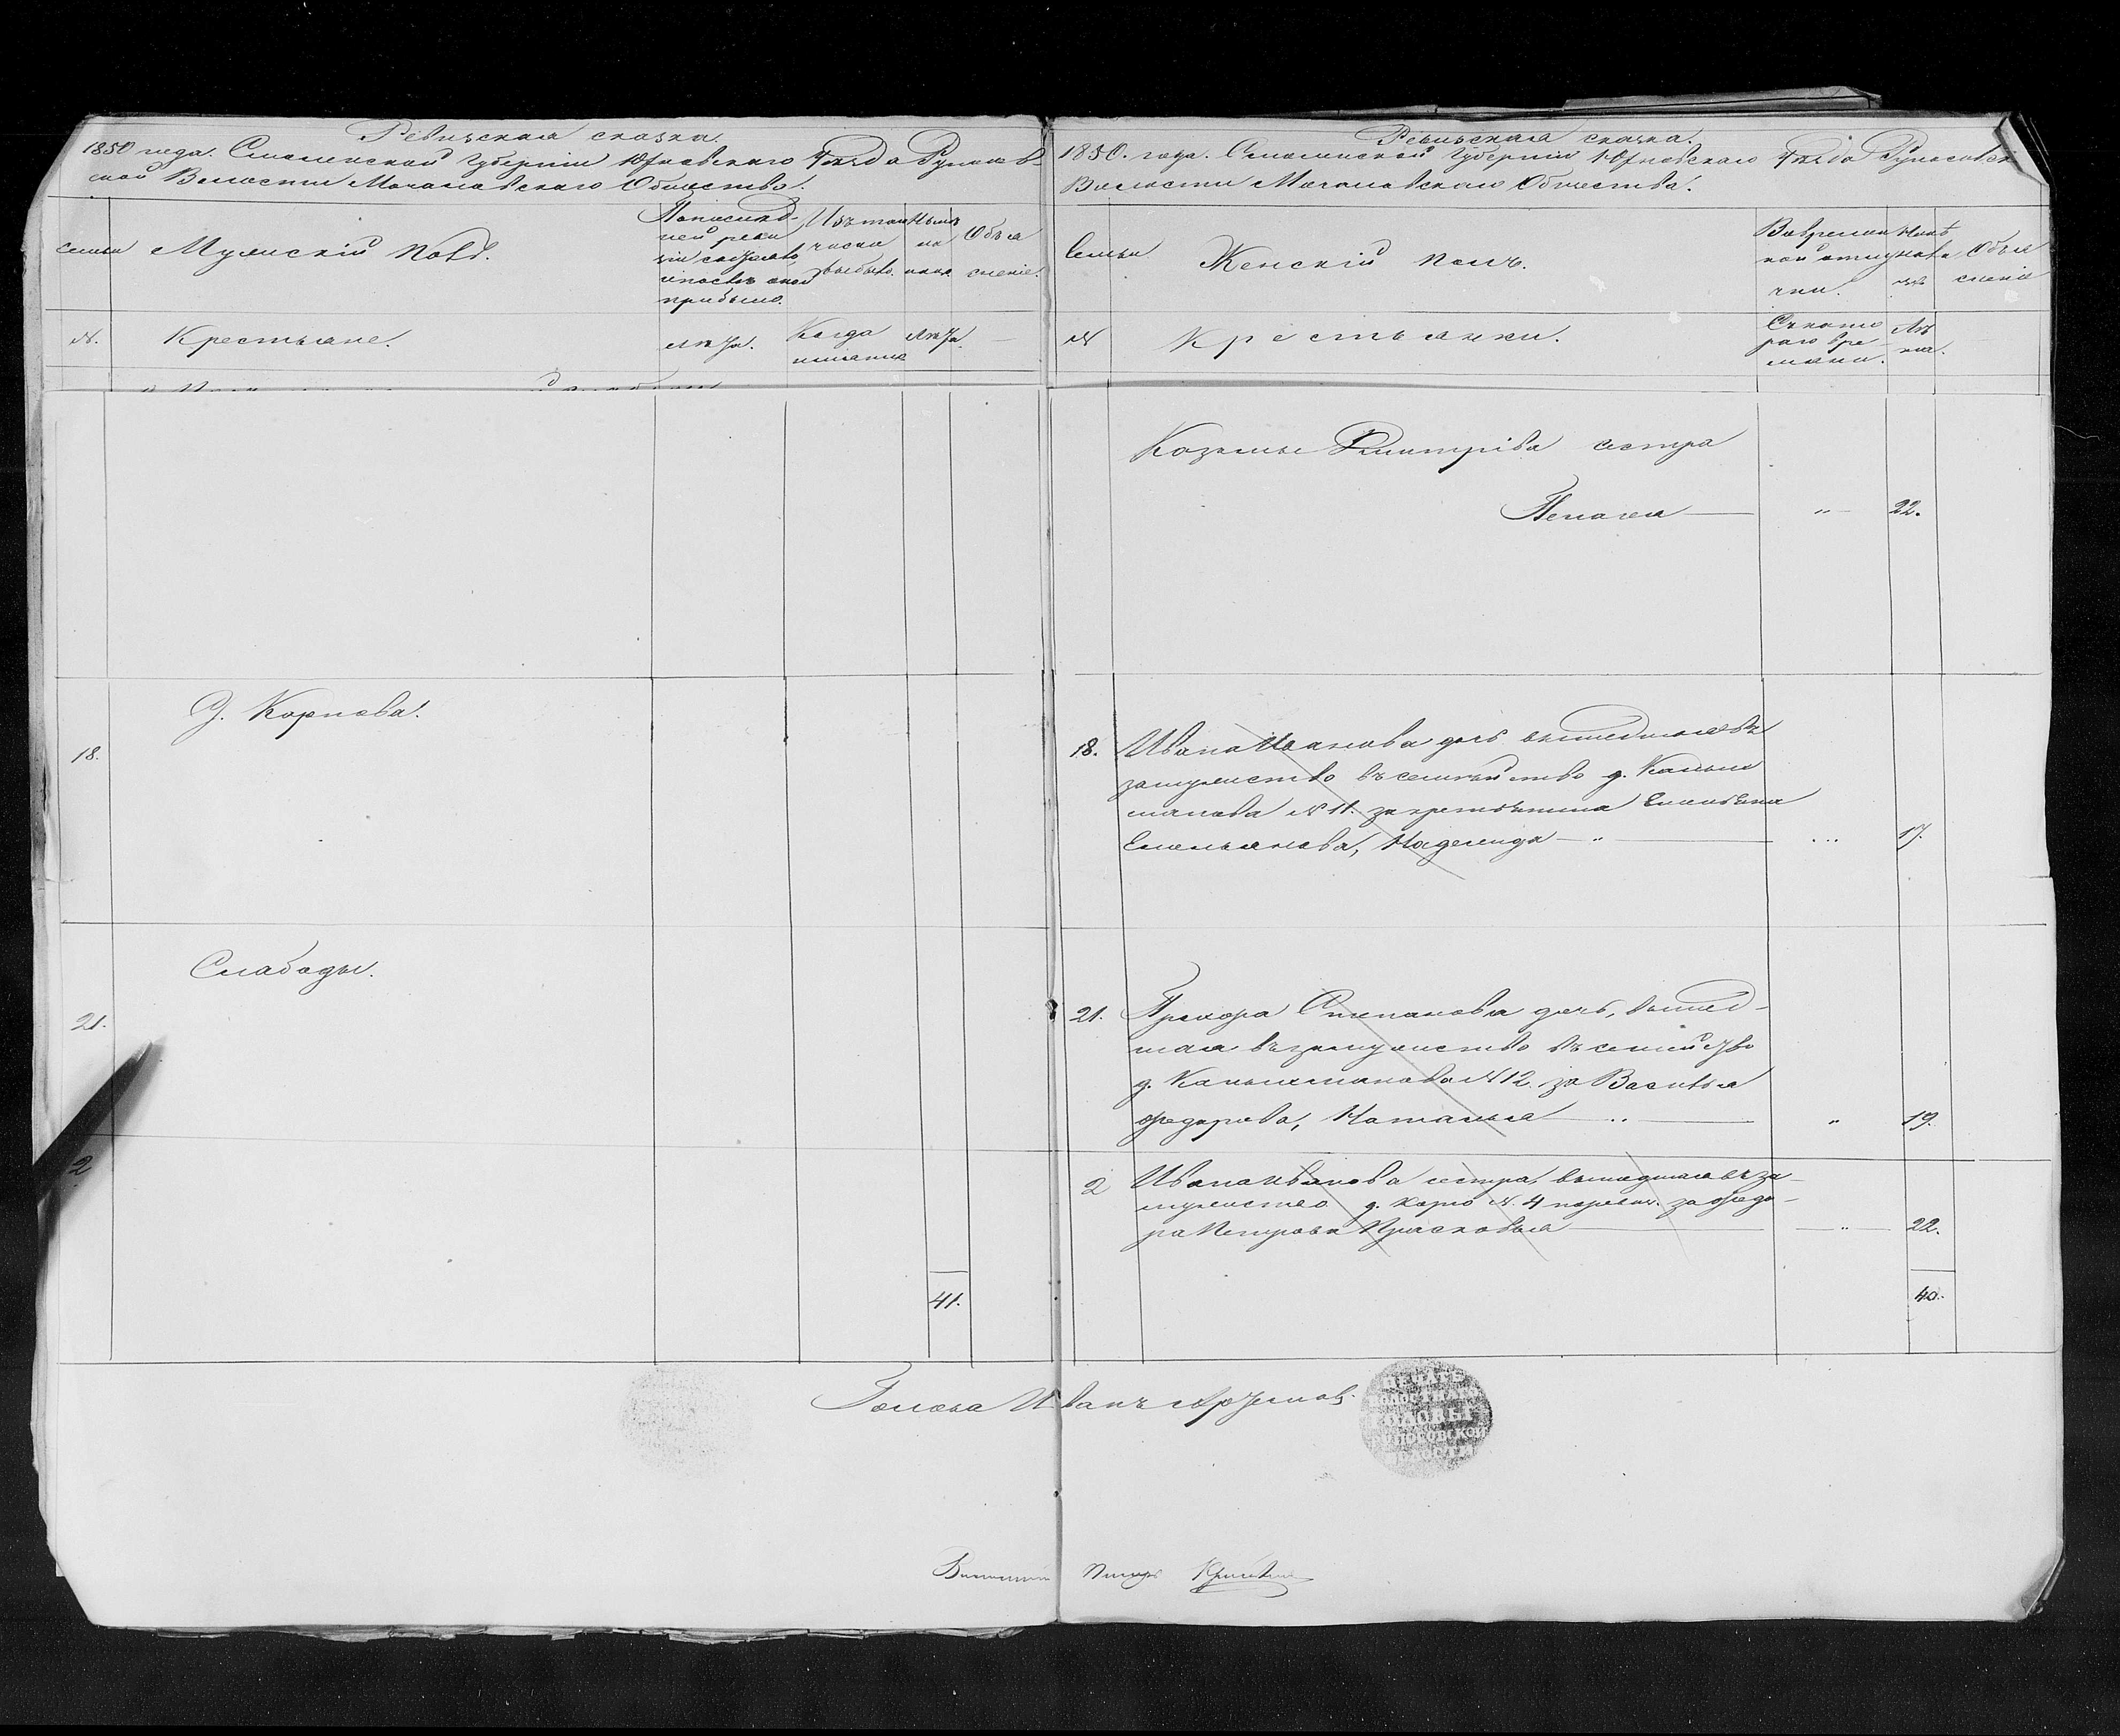 Ревизская сказка.
1850 года. Смоленской Губернии Юхновскаго Уѣзда Румнов-
ской Волости Мочаловскаго Общества.
семьи
Мужескій Полъ.
По послѣд-
ней реви
зіи состояло
и послѣ оной
прибыло.
Изъ того
числа
выбыло.
Нынѣ
на
лицо
Объя
сненіе.
№.
Крестьяне.
Лѣта.
Когда
именно
Лѣта.
18.
Д. Корнева.
21.
Слабоды.
2
41.
Ревизская сказка.
1850. года. Смоленской Губерніи Юхновскаго Уѣзда
Волости Мочаловскаго Общества.
Семьи
Женскій полъ.
Во времен
ной отлу
чки.
Нынѣ
на
Объя
сненія
№
Крестьянки.
Съ кото
раго вре
мени.
Лѣ
та.
Козьмы Дмитріева сестра
Пелагея — " — 22.
18. Ивана Иванова дочь вышедшая въ
замужество въ семейство д. Камы
манова № 11. за крестьянина
Емельянова, Надежда — " — 17.
21. Прохора Степанова дочь, вышед-
шая въ замужество въ семейство
д. № 12. за Василья
Федорова, Наталья — " — " 19.
2 Ивана Иванова сестра, вышедшая въ за-
мужество д. Корно № 4 за Федо-
ра Петрова Прасковья — " — 22.
40.
Голова Иванъ
ПЕЧАТЬ
ВОЛОСТНАГО
ГОЛОВЫ
ВОЛОСТИ
Волостной Писарь